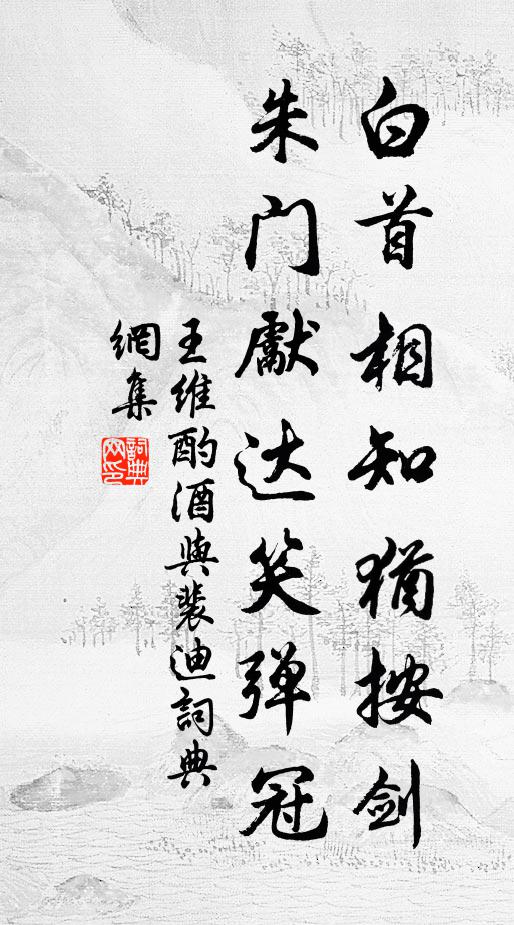 白首相知猶按剑
朱门獻达笑弹冠
王维酌酒與裴迪詞典
網集
詞典网印